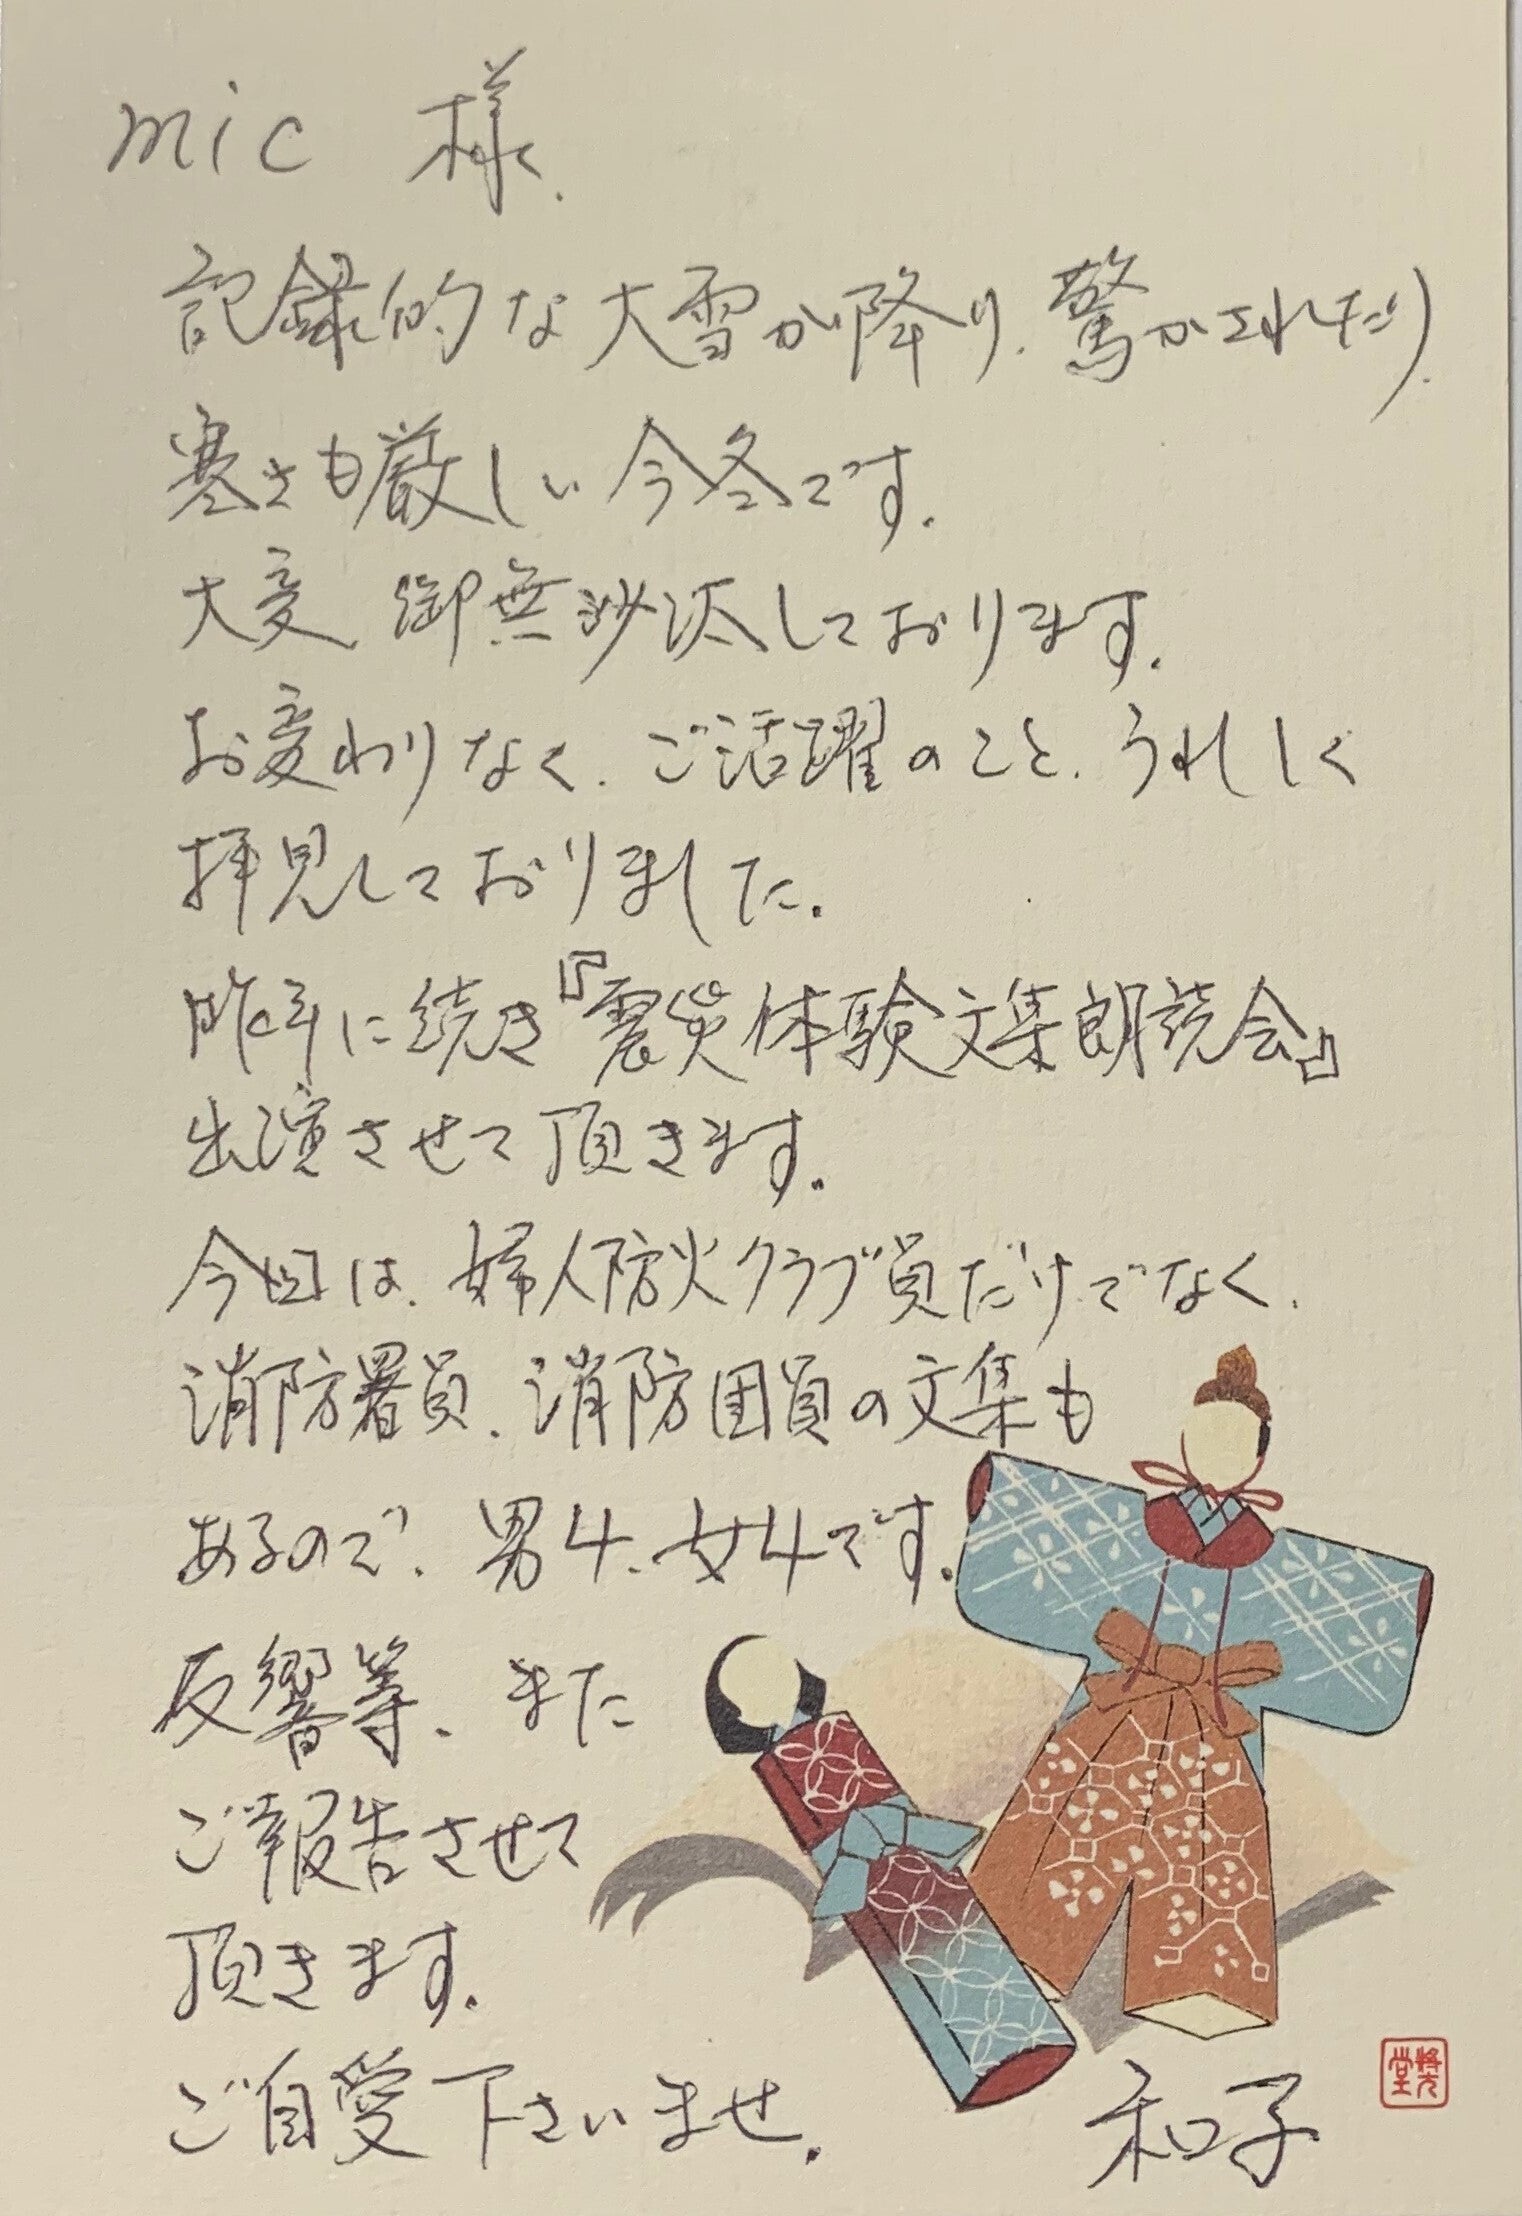 mic 様
記録的な大雪が降り、驚かされたり、
寒さも厳しい今冬です。
大変、御無沙汰しております。
お変わりなく、ご活躍のこと、うれしく
拝見しておりました。
昨年に続き『震災体験文集朗読会』
出演させて頂きます。
今回は、婦人防火クラブ員だけでなく、
消防署員、消防団員の文集も
あるので、男4、女4です。
反響等、また
ご報告させて
頂きます。
ご自愛下さいませ。
和子